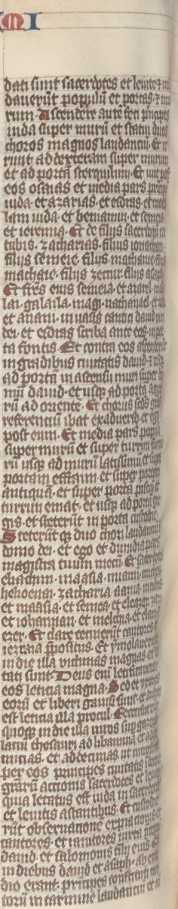 dati sunt sacerdotes et leuite et mu
dauerunt populu et portas et mu
rum. Ascendere aute feci principes
iuda super muru et statui duos
choros magnos laudantiu. Et ie
runt ad dexteram super murum
et ad porta sterquilinii. Et iuit post
eos osaias et media pars principu
iuda. et azarias. et esdras. et mosol
lam iuda et beniamin. et semeia
et ieremia. Et de filiis sacerdotu in
tubis. zacharias. filius ionathan.
filius semeie. filius mathanie. filius
machaie. filius zecur. filius asaph.
Et fratres eius semeia. et azarel. mala
lai. galalai. maai. nathanael. et iuda
et anani. in uasis cantici dauid uiri
dei. et esdras scriba ante eos in por
ta fontis. Et contra eos ascenderunt
in gradibus ciuitatis dauid
in ascensu muri super do
mu dauid. et usque ad porta aqua
ru ad oriente. Et chorus secundus gras
referentiu ibat ex aduerso et ego
post eum. Et media pars populi
super muru et super turrim furno
ru usque ad muru latissimu. et super
portam effraim et super porta
antiqua. et super porta pisciu et
turrim emat. et usque ad porta gre
gis. et steterut in porta custodie.
Steterutque duo chori laudantiu in
domo dei. et ego et dimidia pars
magistratuum mecu. Et sacerdotes
eliachim. maasia. miami. michea.
helioenai. zacharia. anania in tubis
et maasia. et semea. et eleazar. et azi
et iohannan. et melchia. et elam. et
ezer. Et clare cecinerut cantores. et
iezraia prepositus. Et ymolauerunt
in die illa uictimas magnas et le
tati sunt. Deus eni letificauerat
eos leticia magna. Sed et uxores
eoru et liberi gauisi sunt. et audita
est leticia ierlm procul. Recensuerut
quoque in die illa uiros super gazophi
laciu thesauri ad libamina et ad pri
micias. et ad decimas ut introferrent
per eos principes ciuitatis in decore
graru actionis sacerdotes et leuitas
quia letatus est iuda in sacerdotib
et leuitis astantibus. Et custodie
rut obseruatione dei sui
cantores. et ianitores iuxta preceptu
dauid et salomonis filii eius. quia
in diebus dauid et asaph. ab exor
dio erant principes constituti can
toru in carmine laudantiu et